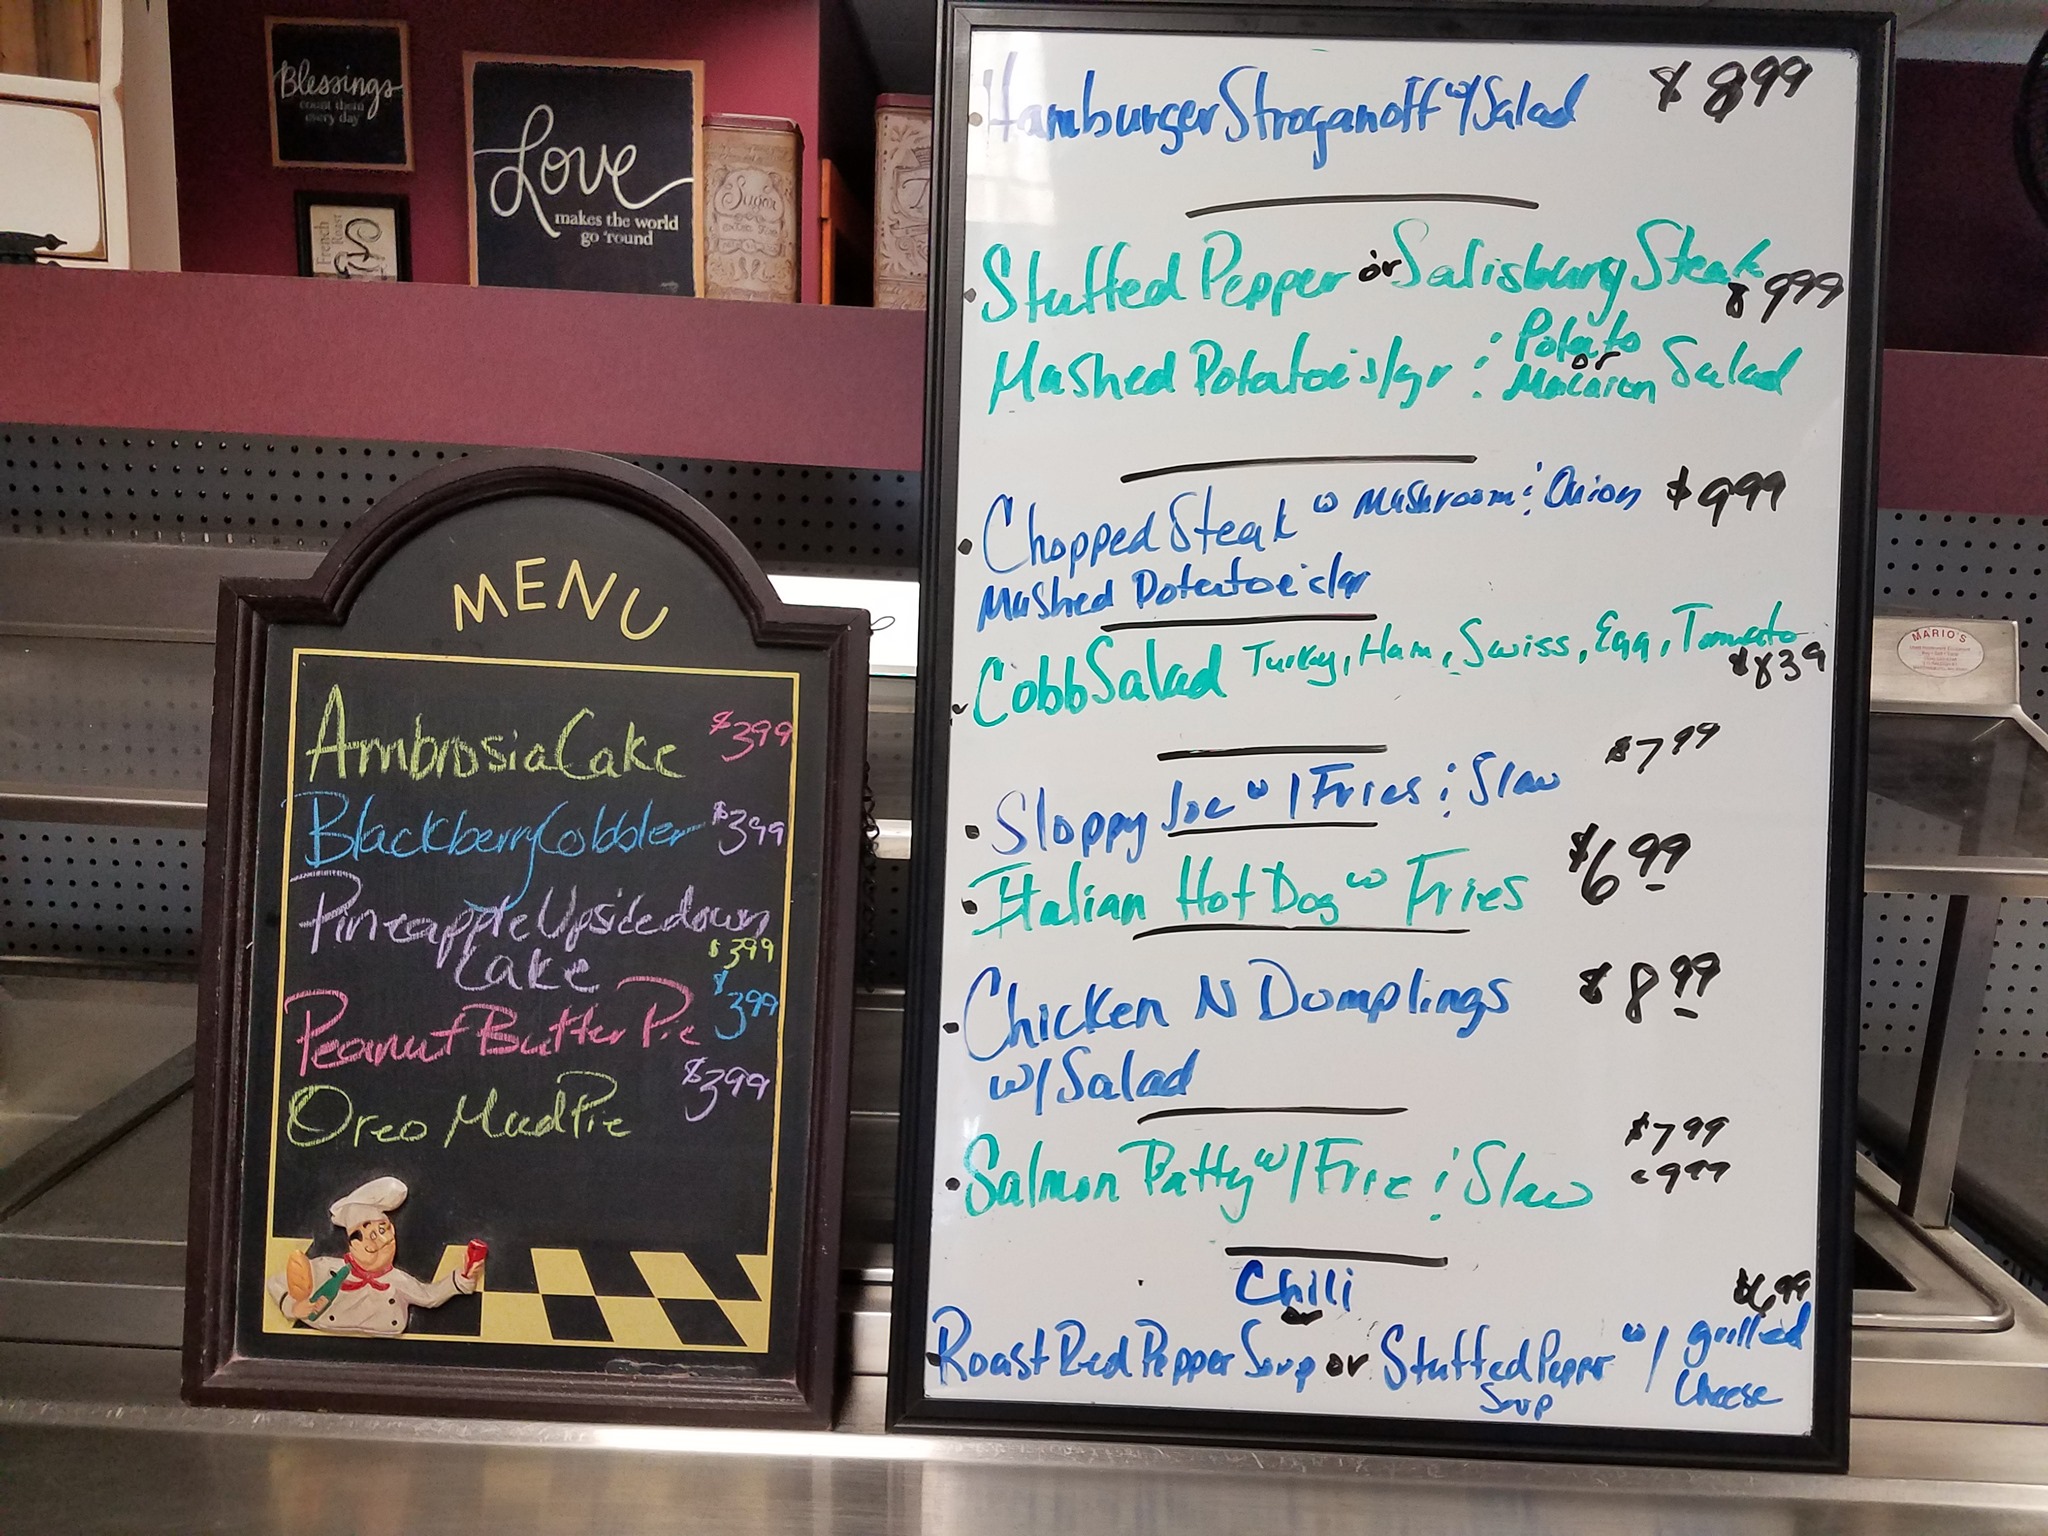 Blessings
count them
every day
Love
makes the world
go 'round
French
Roast
Sugar
MENU
Ambrosia Cake $3.99
Blackberry Cobbler $3.99
Pineapple Upsidedown
Cake $3.99
Peanut Butter Pie $3.99
Oreo Mud Pie $3.99
Hamburger Stroganoff w/ Salad $8.99
Stuffed Pepper or Salisbury Steak $9.99
Mashed Potatoe's/gr & Potato or Macaroni Salad
Chopped Steak w Mushroom & Onion $9.99
Mashed Potatoe's/gr
Cobb Salad Turkey, Ham, Swiss, Egg, Tomato $8.39
Sloppy Joe w/ Fries & Slaw $7.99
Italian Hot Dog w Fries $6.99
Chicken N Dumplings $8.99
w/ Salad
Salmon Patty w/ Frie & Slaw $7.99
Chili $6.99
or
Roast Red Pepper Soup or Stuffed Pepper Soup w/ grilled Cheese
MARIO'S